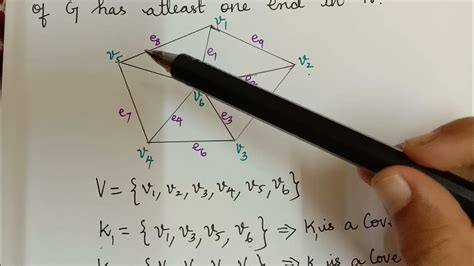 of G has atleast one end in
v₁
e₈
e₉
v₅
e₁
v₂
e₂
v₆
e₇
e₄
e₃
v₄
e₆
v₃
V = {v₁, v₂, v₃, v₄, v₅, v₆}
K₁ = {v₁, v₃, v₅, v₆} ⇒ K₁ is a Cove